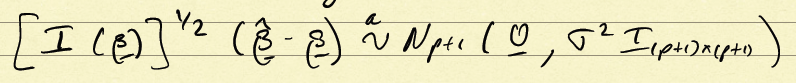 [I(β)]^{1/2} (β̂ - β) ᵃ∼ N_{p+1} (0, σ² I_{(p+1)×(p+1)})